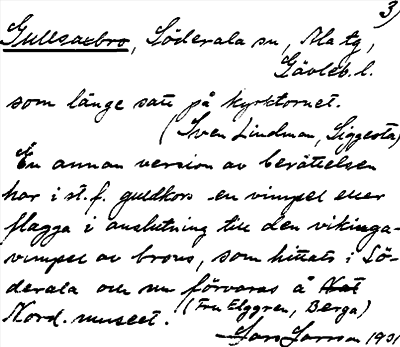 3)
Gullsaxbro, Söderala sn, Ala tg,
Gävleb. l.
som länge satt på kyrktornet.
(Sven Lindman, Siggesta)
En annan version av berättelsen
har i st. f. guldkors en vimpel eller
flagga i anslutning till den vikinga-
vimpel av brons, som hittats i Sö-
derala och nu förvaras å Nat
Nord. museet. (Fru Elggren, Berga)
Lars Larsson 1931